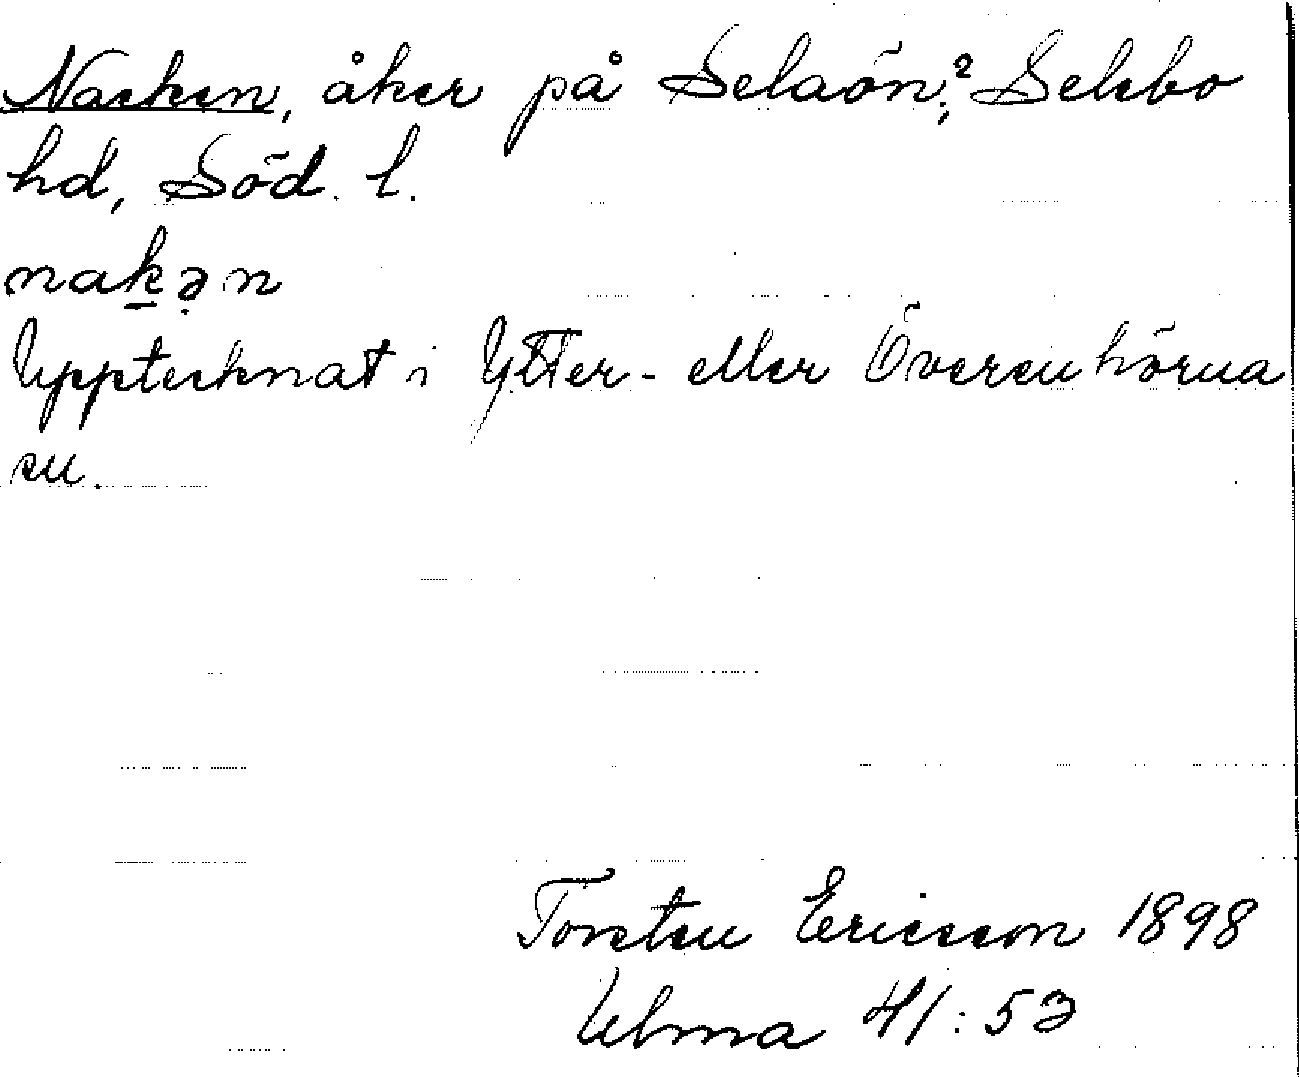 Nacken, åker på Selaön,? Selebo
hd, Söd. l.
nak̲ə̣n
Upptecknat i Ytter- eller Överenhörna
sn.
Torsten Ericsson 1898
Ulma 41:53